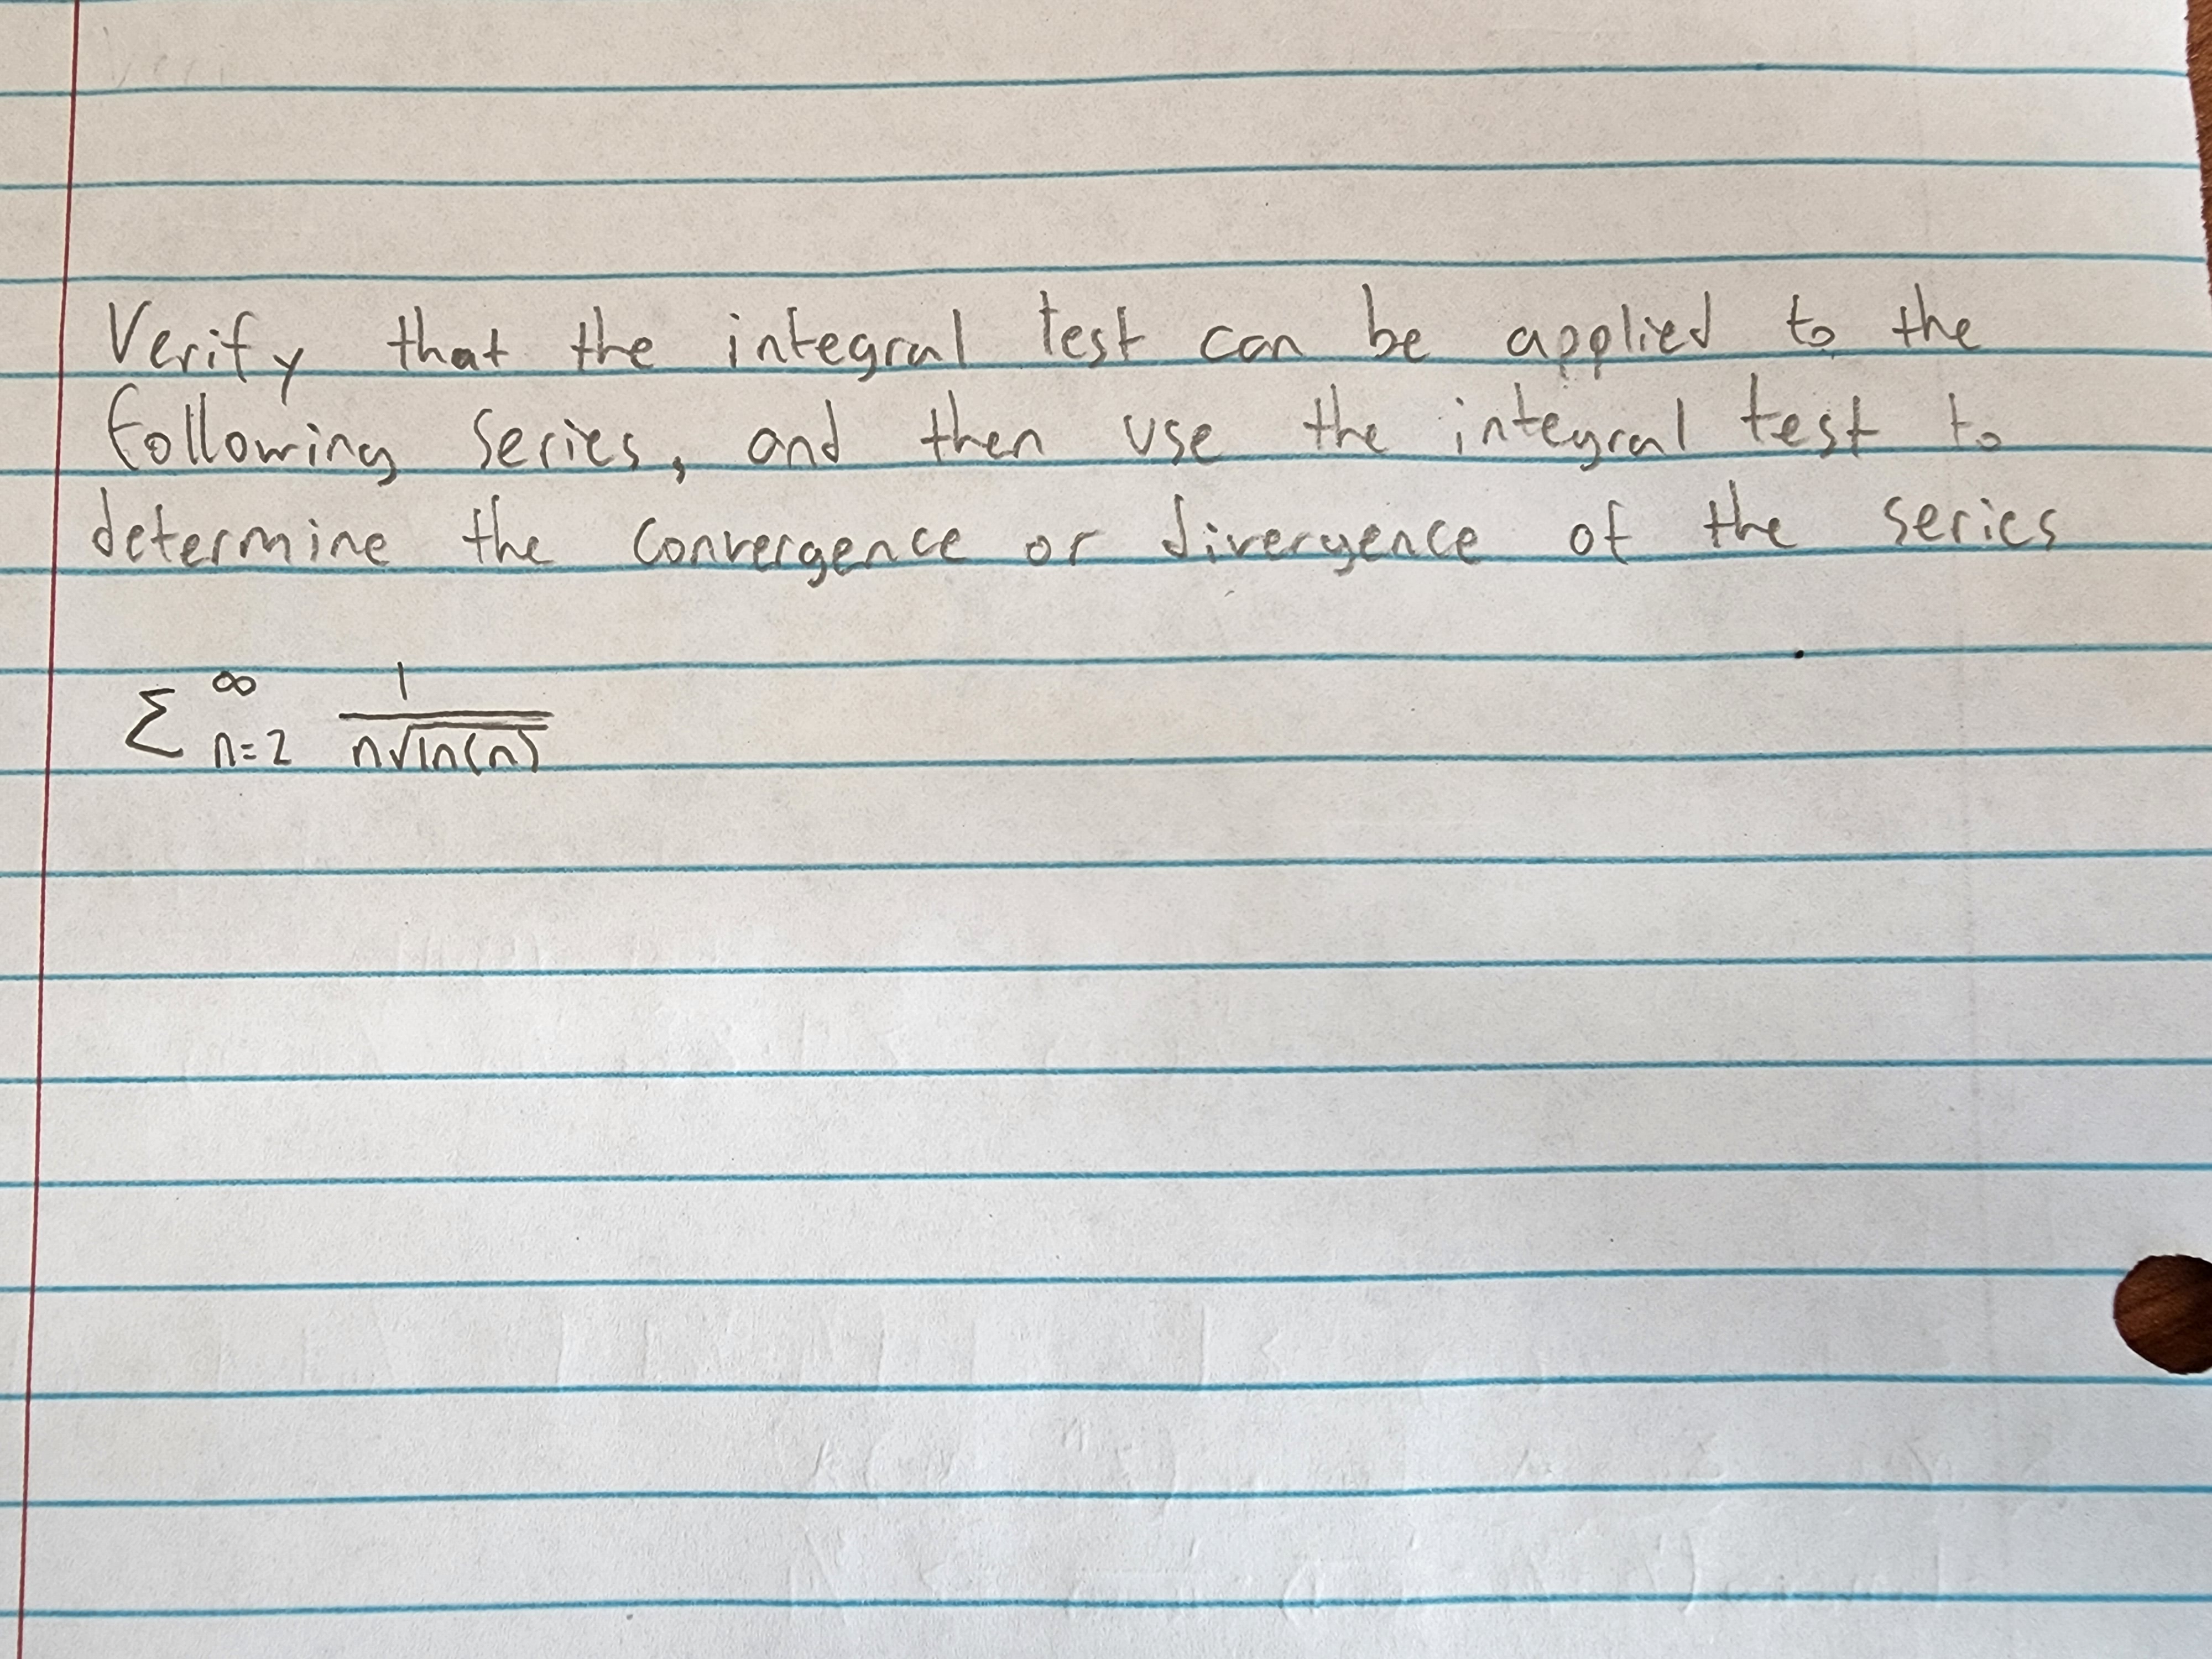 Verify that the integral test can be applied to the
following series, and then use the integral test to
determine the convergence or divergence of the series
∑ ∞ n=2 1/(n√ln(n))